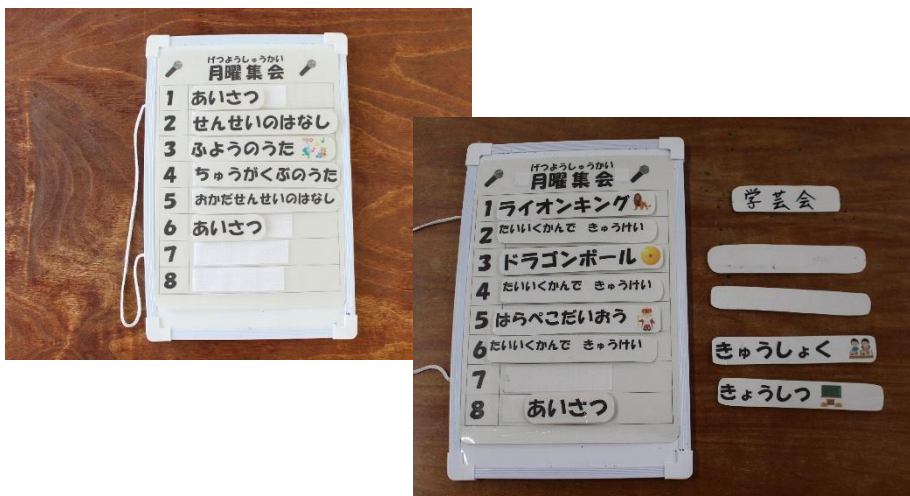 げつようしゅうかい
月曜集会
1 あいさつ
2 せんせいのはなし
3 ふようのうた
4 ちゅうがくぶのうた
5 おかだせんせいのはなし
6 あいさつ
7
8
げつようしゅうかい
月曜集会
1 ライオンキング
2 たいいくかんで きゅうけい
3 ドラゴンボール
4 たいいくかんで きゅうけい
5 はらぺこだいおう
6 たいいくかんで きゅうけい
7
8 あいさつ
学芸会
きゅうしょく
きょうしつ